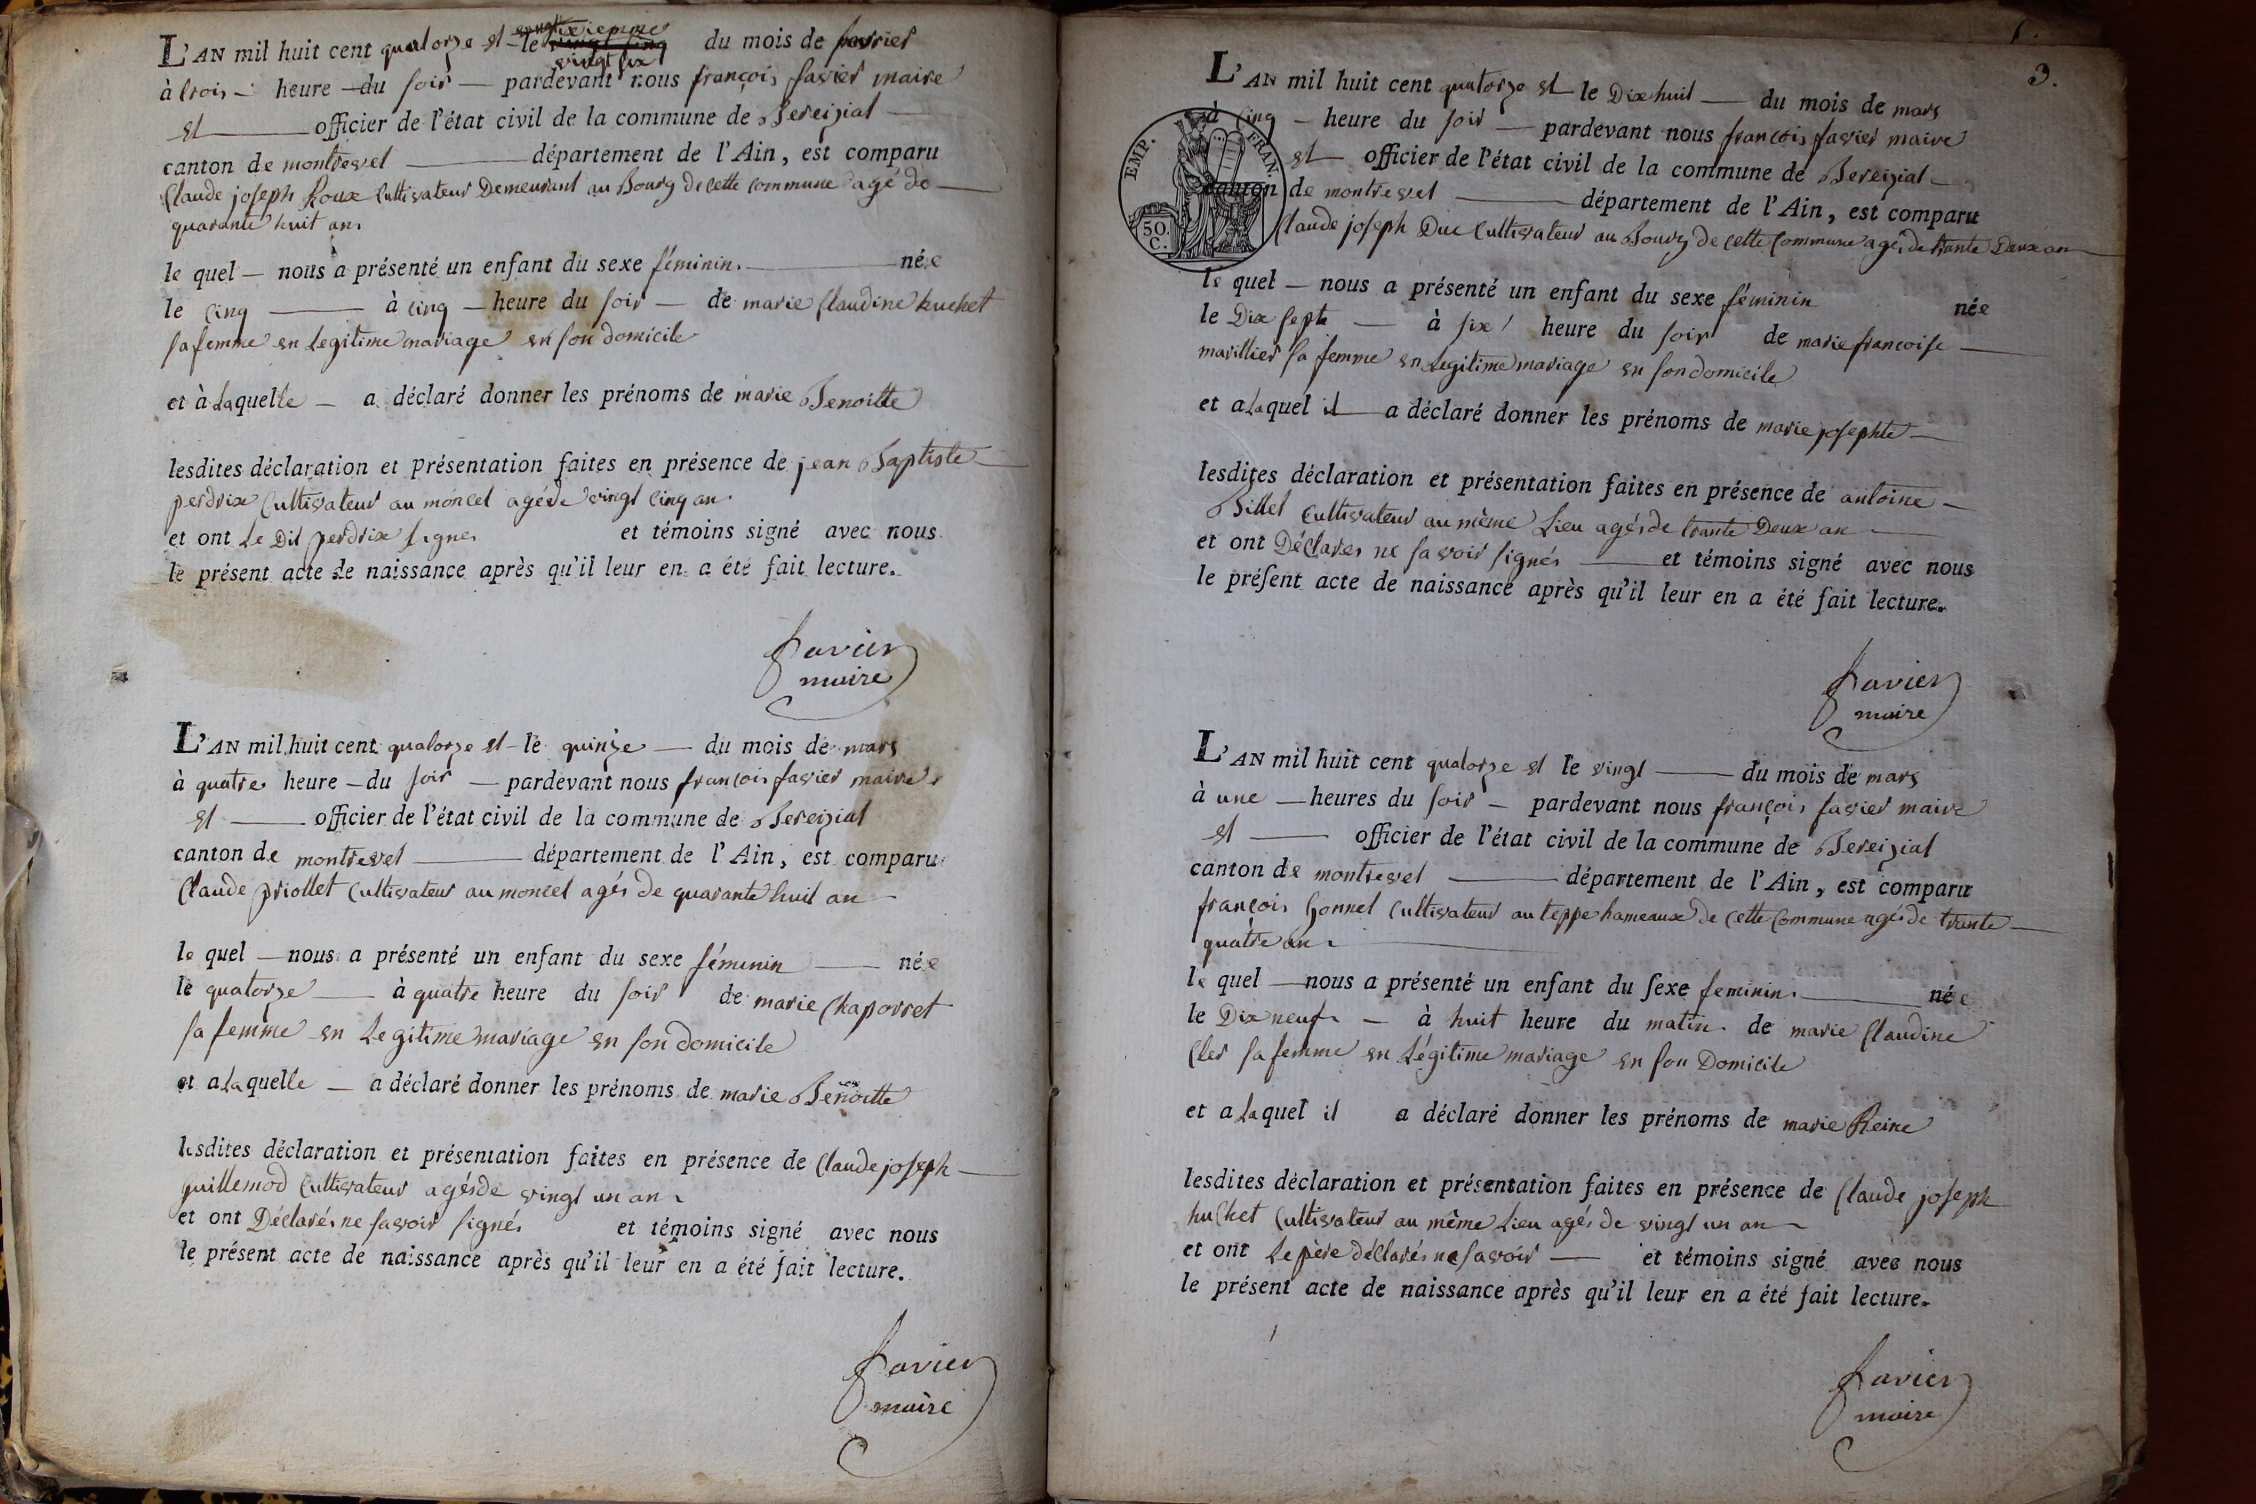 L'AN mil huit cent quatorze et le vingt six du mois de fevrier
à trois heure du soir pardevant nous françois favier maire
et officier de l'état civil de la commune de Bereizial
canton de montrevel département de l'Ain, est comparu
Claude joseph Roux Cultivateur Demeurant au Bourg de cette commune agé de
quarante huit an
le quel nous a présenté un enfant du sexe féminin née
le cinq à cinq heure du soir de marie Claudine huchet
sa femme en Legitime mariage en son domicile
et à Laquelle a déclaré donner les prénoms de marie Benoitte
lesdites déclaration et présentation faites en présence de jean Baptiste
perdrix Cultivateur au moncel agés de vingt cinq an
et ont Le Dit perdrix signé et témoins signé avec nous
le présent acte de naissance après qu'il leur en a été fait lecture.
favier
maire
L'AN mil huit cent quatorze et le quinze du mois de mars
à quatre heure du soir pardevant nous françois favier maire
et officier de l'état civil de la commune de Bereizial
canton de montrevel département de l'Ain, est comparu
Claude priollet Cultivateur au moncel agés de quarante huit an
le quel nous a présenté un enfant du sexe féminin née
le quatorze à quatre heure du soir de marie Chaporret
sa femme en Legitime mariage en son domicile
et a Laquelle a déclaré donner les prénoms de marie Benoitte
lesdites déclaration et présentation faites en présence de Claude joseph
guillemod Cultivateur agés de vingt un an
et ont Déclarés ne savoir signés et témoins signé avec nous
le présent acte de naissance après qu'il leur en a été fait lecture.
favier
maire
3.
L'AN mil huit cent quatorze et le Dix huit du mois de mars
à cinq heure du soir pardevant nous françois favier maire
et officier de l'état civil de la commune de Bereizial
canton de montrevel département de l'Ain, est comparu
EMP. FRAN.
50.
C.
Claude joseph Duc Cultivateur au Bourg de cette Commune agés de trante Deux an
le quel nous a présenté un enfant du sexe féminin née
le Dix septe à six heure du soir de marie francoise
marillier sa femme en Legitime mariage en son domicile
et a La quel il a déclaré donner les prénoms de marie josephte
lesdites déclaration et présentation faites en présence de antoine
Billet Cultivateur au même Lieu agés de trante Deux an
et ont Déclarés ne savoir signés et témoins signé avec nous
le présent acte de naissance après qu'il leur en a été fait lecture.
favier
maire
L'AN mil huit cent quatorze et le vingt du mois de mars
à une heures du soir pardevant nous françois favier maire
et officier de l'état civil de la commune de Bereizial
canton de montrevel département de l'Ain, est comparu
françois Gonnet Cultivateur au teppe hameaux de cette Commune agés de trante
quatre an
le quel nous a présenté un enfant du sexe feminin née
le Dix neuf à huit heure du matin de marie Claudine
Cler sa femme en Légitime mariage en son Domicile
et a La quel il a déclaré donner les prénoms de marie Reine
lesdites déclaration et présentation faites en présence de Claude joseph
huchet Cultivateur au même Lieu agés de vingt un an
et ont Le père déclarés ne savoir et témoins signé avec nous
le présent acte de naissance après qu'il leur en a été fait lecture.
favier
maire